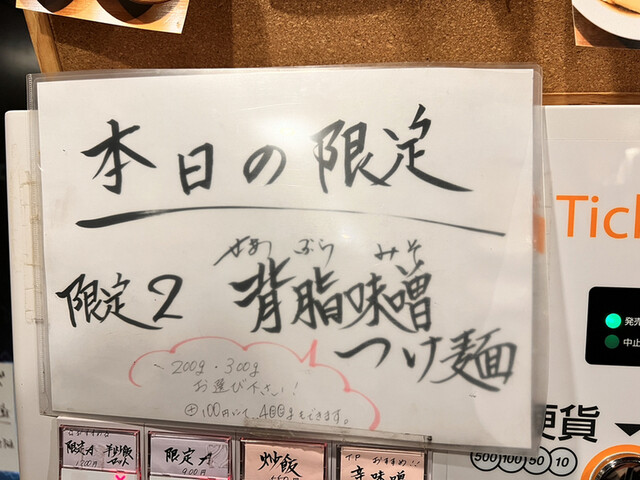 本日の限定
せあ ぶら みそ
限定2 背脂味噌
つけ麺
200g・300g
お選び下さい!
⊕100円にて、400gもできます。
Tick
発売
中止
硬貨
500 100 50 10
限定A
限定A
900円
炒飯
おすすめ!!
辛味噌